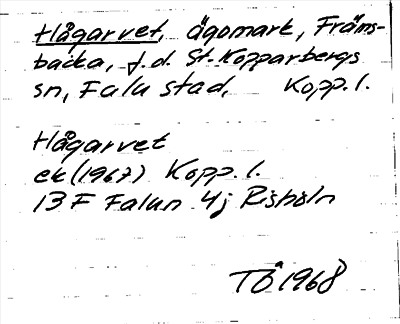 Hågarvet, ägomark, Främs-
backa, f.d. St. Kopparbergs
sn, Falu stad, Kopp. l.
Hågarvet
ek (1967) Kopp. l.
13 F Falun 4j Risholn
TÅ 1968